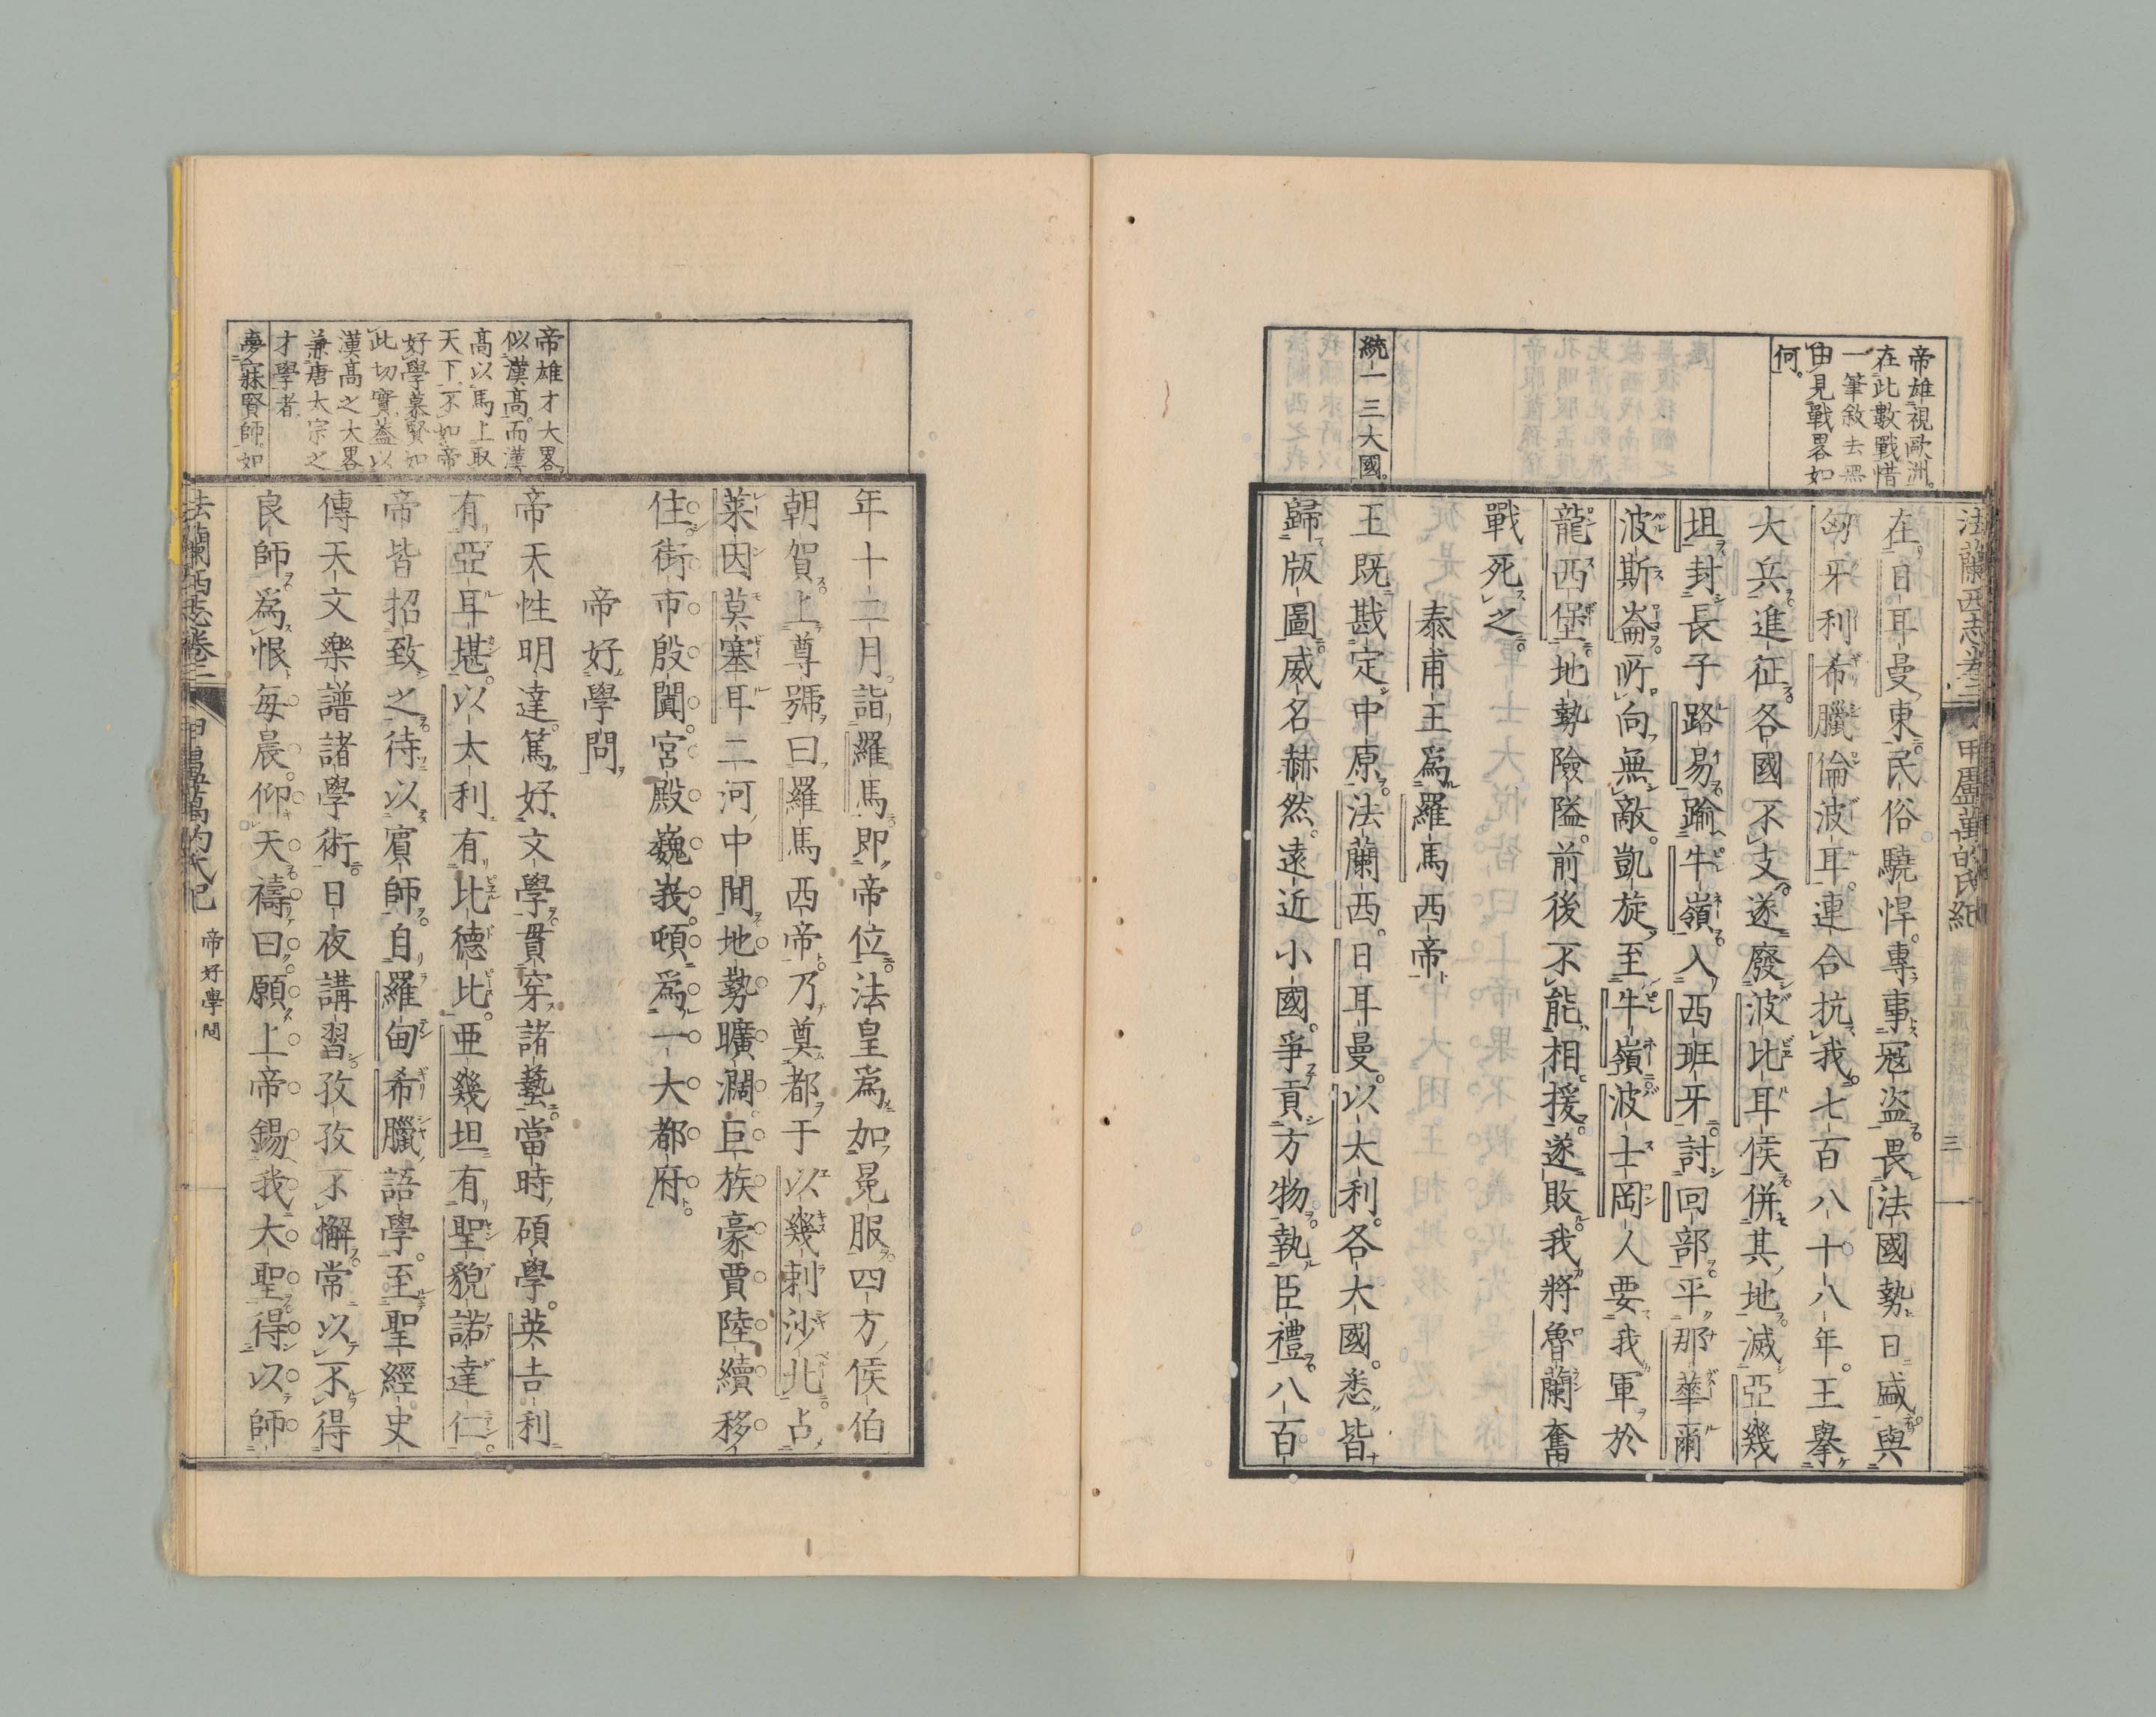 帝雄視歐洲。
在此數戰惜
一筆敘去無
由見戰畧如
何。
統一三大國。
法蘭西志卷二
甲盧萬的氏紀
三
在日耳曼東。民俗驍悍。專事冦盜。畏法國勢日盛與
匈牙利希臘倫波耳。連合抗我。七百八十八年。王擧
大兵進征。各國不支。遂廢波比耳侯。併其地。滅亞幾
坦。封長子路易。踰牛嶺入西班牙。討回部。平那華爾
波斯崙。所向無敵。凱旋至牛嶺。波士岡人要我軍於
龍西堡。地勢險隘。前後不能相援。遂敗我將魯蘭奮
戰死之。
泰甫王爲羅馬西帝
王既戡定中原。法蘭西。日耳曼。以太利。各大國。悉皆
歸版圖。威名赫然。遠近小國。爭貢方物。執臣禮。八百
帝雄才大畧
似漢高。而漢
高以馬上取
天下。不如帝
好學慕賢如
此切實。蓋以
漢高之大畧
兼唐太宗之
才學者
夢寐賢師。如
年十二月。詣羅馬。即帝位。法皇爲加冕服。四方侯伯
朝賀。上尊號曰羅馬西帝。乃奠都于以幾剌沙北。占
萊因莫塞耳二河中間。地勢曠濶。巨族豪賈陸續移
住。街市殷闐。宮殿巍峩。頓爲一大都府。
帝好學問
帝天性明達。篤好文學。貫穿諸藝。當時碩學。英吉利
有亞耳堪。以太利有比德比。亞幾坦有聖貌諾達仁。
帝皆招致之。待以賓師。自羅甸希臘語學。至聖經史
傳天文樂譜諸學術。日夜講習。孜孜不懈。常以不得
良師爲恨。每晨仰天禱曰。願上帝錫我大聖。得以師
法蘭西志卷二
甲盧萬的氏紀
帝好學問